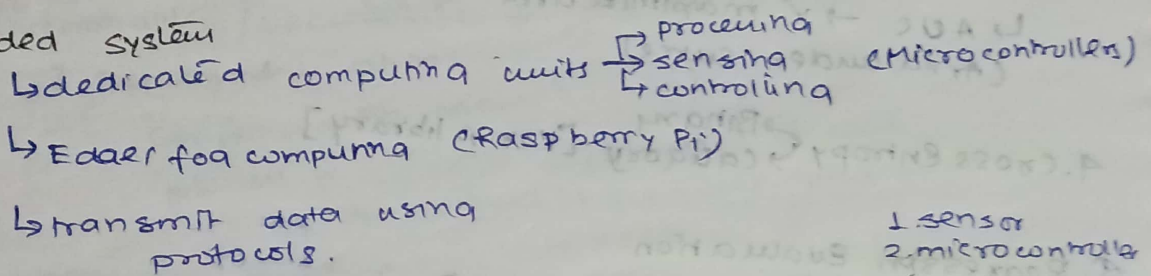 ded system
↳dedicated computing units → processing
→ sensing (Microcontrollers)
↳ controlling
↳ Edge/ fog computing (Raspberry Pi)
↳ transmit data using
protocols.
1. sensor
2. microcontrolle